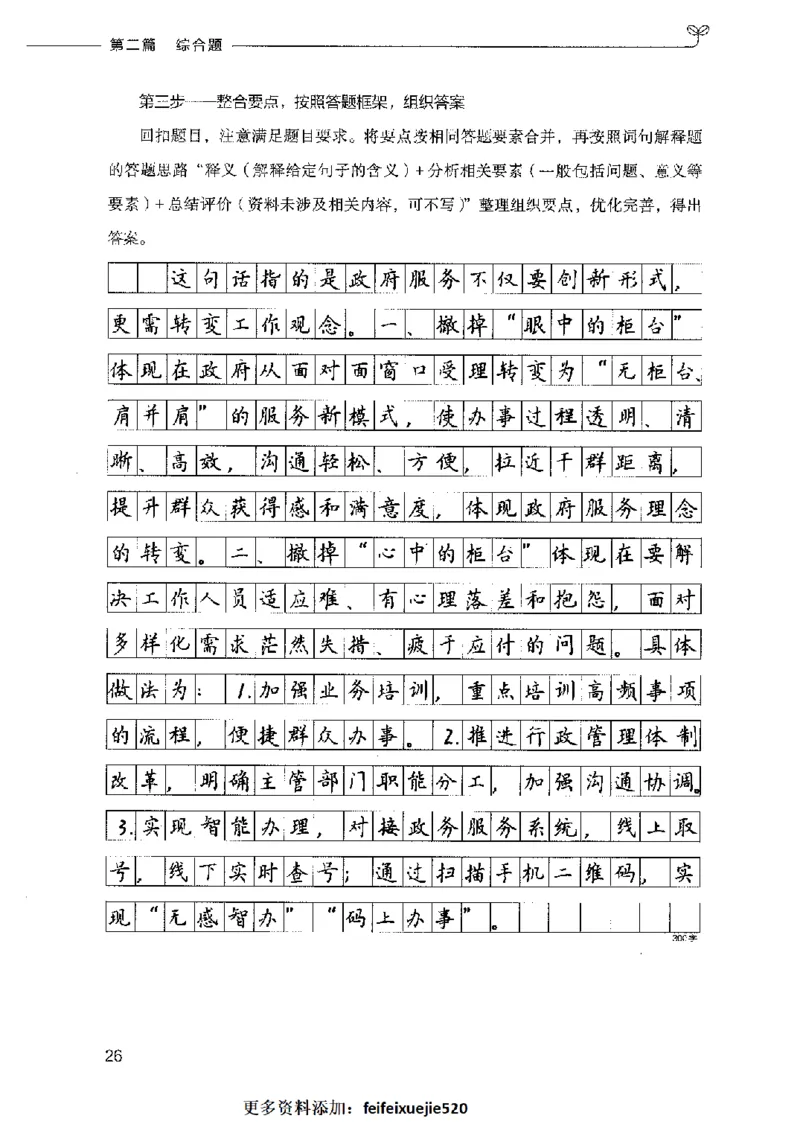 第二篇 综合题
第三步——整合要点，按照答题框架，组织答案
回扣题目，注意满足题目要求。将要点按相同答题要素合并，再按照词句解释题
的答题思路“释义（解释给定句子的含义）+分析相关要素（一般包括问题、意义等
要素）+总结评价（资料未涉及相关内容，可不写）”整理组织要点，优化完善，得出
答案。
这句话指的是政府服务不仅要创新形式，
更需转变工作观念。一、撤掉“眼中的柜台”
体现在政府从面对面窗口受理转变为“无柜台、
肩并肩”的服务新模式，使办事过程透明、清
晰、高效，沟通轻松、方便，拉近干群距离，
提升群众获得感和满意度，体现政府服务理念
的转变。二、撤掉“心中的柜台”体现在要解
决工作人员适应难、有心理落差和抱怨，面对
多样化需求茫然失措、疲于应付的问题。具体
做法为：1.加强业务培训，重点培训高频事项
的流程，便捷群众办事。2.推进行政管理体制
改革，明确主管部门职能分工，加强沟通协调。
3.实现智能办理，对接政务服务系统，线上取
号，线下实时查号；通过扫描手机二维码，实
现“无感智办”“码上办事”。
300字
26
更多资料添加：feifeixuejie520